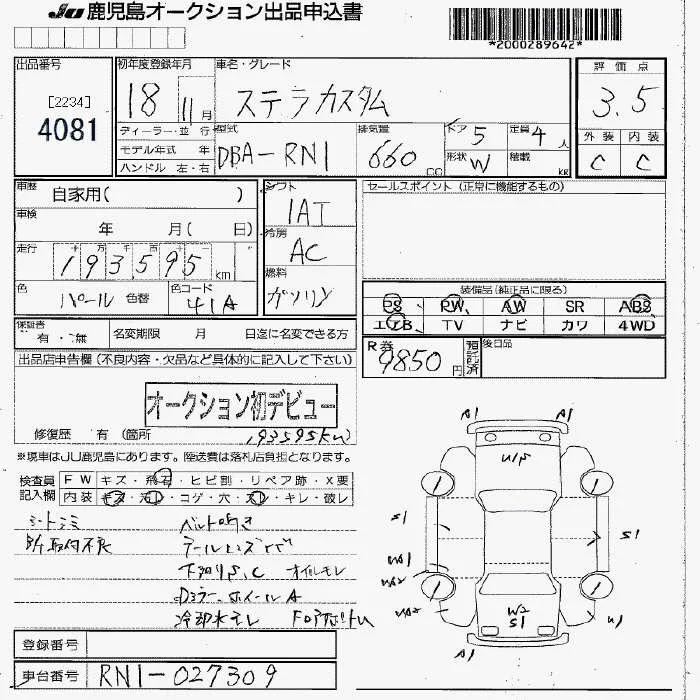 JU 鹿児島オークション出品申込書
*2000289642*
出品番号 [2234] 4081
初年度登録年月 18 11月
車名・グレード ステラカスタム
評価点 3.5
外装 C 内装 C
ディーラー・並行
モデル年式 年
ハンドル 左・右
型式 DBA-RN1
排気量 660 CC
ドア 5 定員 4人
形状 W 積載 kg
車歴 自家用( )
車検 年 月( 日)
走行 十 万 千 百 十 一
193,595 km
色 パール 色替 色コード 41A
シフト IAT
冷房 AC
燃料 ガソリン
セールスポイント (正常に機能するもの)
装備品(純正品に限る)
PS PW AW SR ABS
エアB TV ナビ カワ 4WD
保証書 有・無
名変期限 月 日迄に名変できる方
R券 9850円 預託済
後日品
出品店申告欄(不良内容・欠品など具体的に記入して下さい)
オークション初デビュー
修復歴 有 (箇所 193595km)
※現車はJU鹿児島にあります。陸送費は落札店負担となります。
検査員記入欄
FW キズ・飛石・ヒビ割・リペア跡・X要
内装 キズ・汚レ・コゲ・穴・スレ・キレ・破レ
シートシミ ベルト鳴き
取付不良
下廻りS,C オイルモレ
Dミラー、ホイールA
冷却水モレ
A1 A1
U1P
S1 S1
W2
S1
A1 U1
登録番号
車台番号 RN1-027309